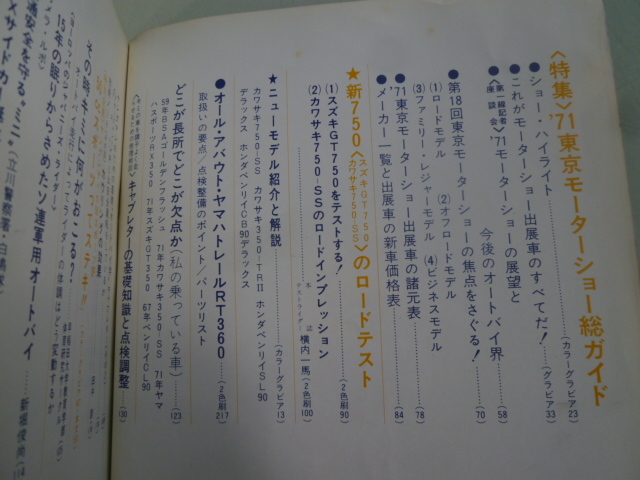 〈特集〉'71東京モーターショー総ガイド
●ショー・ハイライト……(カラーグラビア23)
●これがモーターショー出展車のすべてだ!……(グラビア33)
●〈第一線記者座談会〉'71モーターショーの展望と
今後のオートバイ界……(58)
●第18回東京モーターショーの焦点をさぐる!……(70)
(1)ロードモデル (2)オフロードモデル
(3)ファミリー・レジャーモデル (4)ビジネスモデル
●'71東京モーターショー出展車の諸元表……(78)
●メーカー一覧と出展車の新車価格表……(84)
★新750〈スズキGT750 カワサキ750-SS〉のロードテスト
(1)スズキGT750をテストする!……(2色刷90)
(2)カワサキ750-SSのロードインプレッション
本誌テストライダー 横内一馬(2色刷100)
★ニューモデル紹介と解説……(カラーグラビア13)
カワサキ750-SS カワサキ350-TRⅡ ホンダベンリイSL90
デラックス ホンダベンリイCB90デラックス
●オール・アバウト・ヤマハトレールRT360……(2色刷217)
取扱いの要点/点検整備のポイント/パーツリスト
どこが長所でどこが欠点か(私の乗っている車)……(123)
59年BSAゴールデンフラッシュ 71年カワサキ350-SS 71年ヤマ
ハスポーツRX350 71年スズキGT350 67年ベンリイCL90
キャブレターの基礎知識と点検調整……
その時キミに何がおこる?
15年の眠りからさめたソ連軍用オートバイ